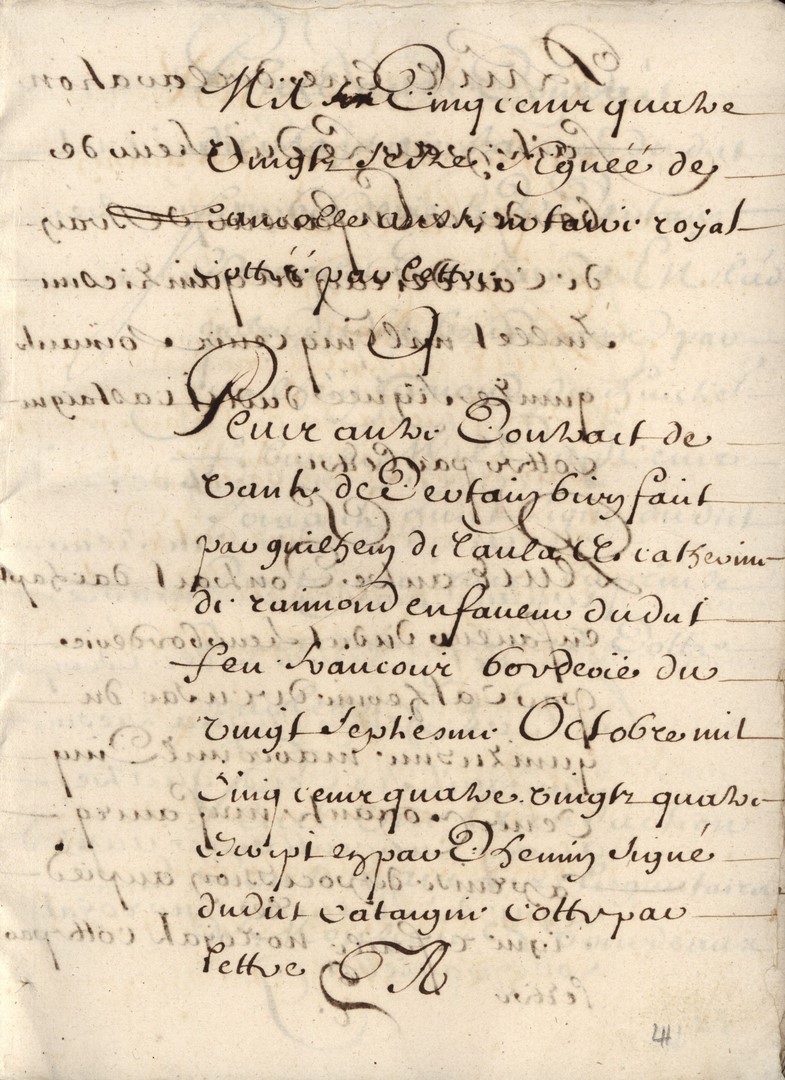 Mil Cinq cens quatre
vingtz seize Signéé de
notaire royal
cottéé par lettre
Plus autre Contract de
vante de Certain bien faict
par guilhem de Laula & catherine
de raimond en faveur dudict
feu francour borderie du
vingt septiesme Octobre mil
Cinq cens quatre vingtz quatre
escript en parchemin signé
dudict cataigne cotté par
lettre